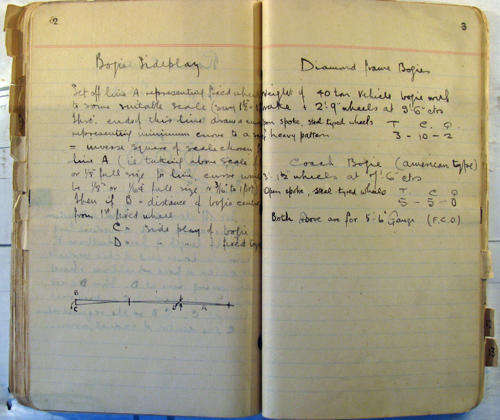 2
Bogie Sideplay
Set off line A representing fixed wheel
to some suitable scale (say 1½" - 1
thro' end of this line draw a curve
representing minimum curve to a
= inverse square of scale chosen
line A (ie taking above scale
or ⅛ full size to line, curve would
to full size or
then if B = distance of bogie centre
from 1st fixed wheel
C = Side play of bogie
D = fixed
B
C
3
Diamond frame Bogies
Weight of 40 ton vehicle bogie with
2'.9" wheels at 5'.6" ctrs
open spoke, steel tyred wheels T C Q
heavy pattern 3 - 10 - 2
Coach Bogie (American type)
3'.1½" wheels at 7'.6" ctrs
Open spoke, steel tyred wheels T C Q
5 - 5 - 0
Both above are for 5'.6" Gauge (F.C.O.)